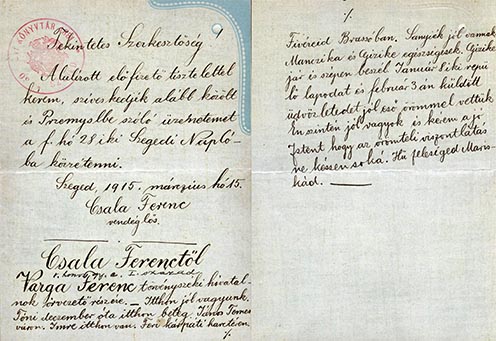 Tekintetes Szerkesztőség
Alulírott előfizető tisztelettel
kérem, sziveskedjék alább közölt
és Przemyslbe szóló üzenetemet
a f. hó 28 iki Szegedi Napló-
ba közétenni.
Szeged, 1915. március hó 15.
Csala Ferenc
vendéglős.
Csala Ferenctől
I. század
Varga Ferenc törvényszéki hivatal-
nok őrvezető részére. — Itthon jól vagyunk.
Töni deczember óta itthon beteg. János Temes-
váron. Imre itthon van. Feri kárpáti harctéren.
%
%
Fivéreid Brassóban. Sanyiék jól vannak
Manczika és Gizike egészségesek. Gizike
jár és szépen beszél. Január 5 iki repü
lő lapodat és február 3 án küldött
üdvözletedet jól eső örömmel vettük
Én szintén jól vagyok és kérem a jó
Istent hogy az örömteli viszontlátás
ne késsen soká. Hű feleséged Maris-
kád.